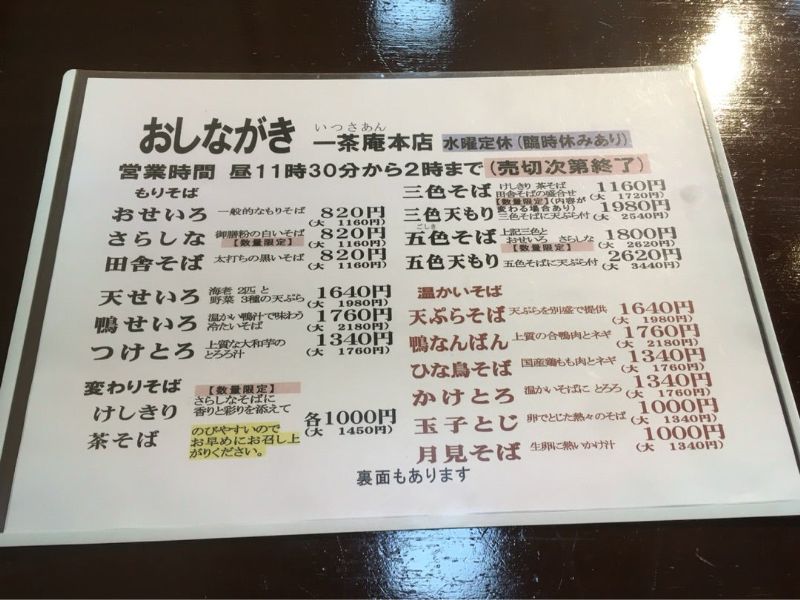 いっさあん
おしながき 一茶庵本店 水曜定休(臨時休みあり)
営業時間 昼11時30分から2時まで(売切次第終了)
もりそば
おせいろ 一般的なもりそば 820円
(大 1160円)
さらしな 御膳粉の白いそば 820円
【数量限定】 (大 1160円)
田舎そば 太打ちの黒いそば 820円
(大 1160円)
天せいろ 海老 2匹 と 1640円
野菜 3種の天ぷら (大 1980円)
鴨せいろ 温かい鴨汁で味わう 1760円
冷たいそば (大 2180円)
つけとろ 上質な大和芋の 1340円
とろろ汁 (大 1760円)
変わりそば 【数量限定】
さらしなそばに
けしきり 香りと彩りを添えて
各1000円
茶そば (大 1450円)
のびやすいので
お早めにお召し上
がりください。
三色そば けしきり 茶そば 1160円
田舎そばの盛合せ (大 1720円)
【数量限定】(内容が
変わる場合あり)
三色天もり 三色そばに天ぷら付 1980円
(大 2540円)
ごしき
五色そば 上記三色と 1800円
おせいろ さらしな (大 2620円)
【数量限定】
五色天もり 五色そばに天ぷら付 2620円
(大 3440円)
温かいそば
天ぷらそば 天ぷらを別盛で提供 1640円
(大 1980円)
鴨なんばん 上質の合鴨肉とネギ 1760円
(大 2180円)
ひな鳥そば 国産鶏もも肉とネギ 1340円
(大 1760円)
かけとろ 温かいそばに とろろ 1340円
(大 1760円)
玉子とじ 卵でとじた熱々のそば 1000円
(大 1340円)
月見そば 生卵に熱いかけ汁 1000円
(大 1340円)
裏面もあります